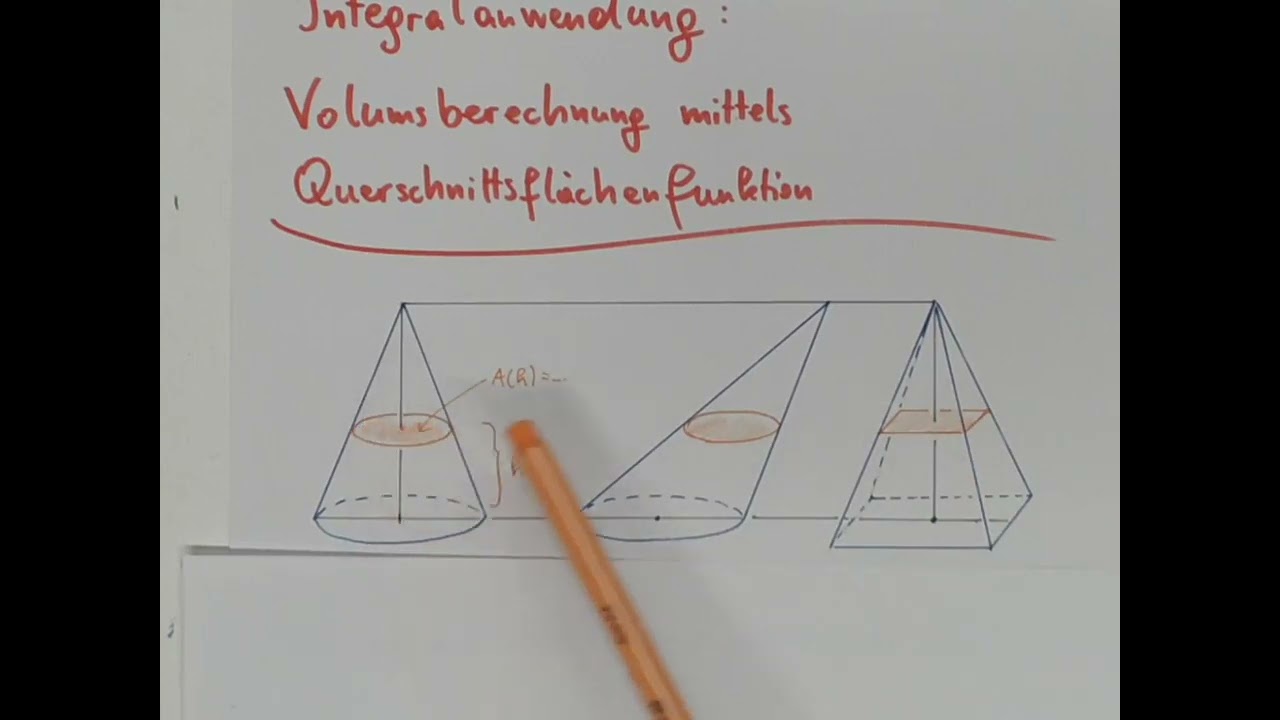 Integralanwendung:
Volumsberechnung mittels
Querschnittsflächenfunktion
A(h)=...